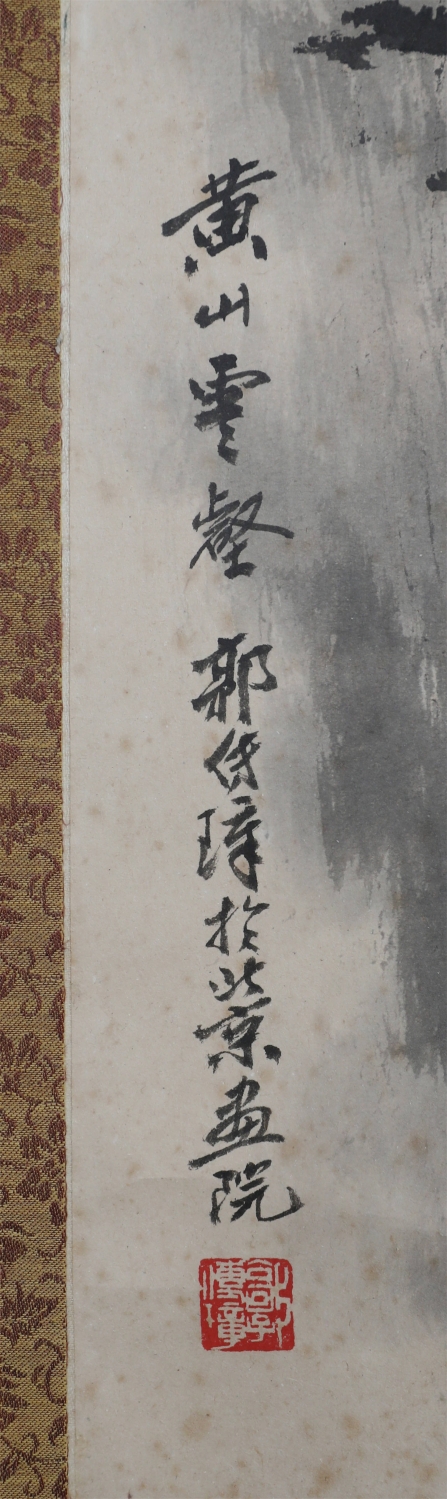 黄山雲壑 郭传璋於北京畫院
郭傳璋